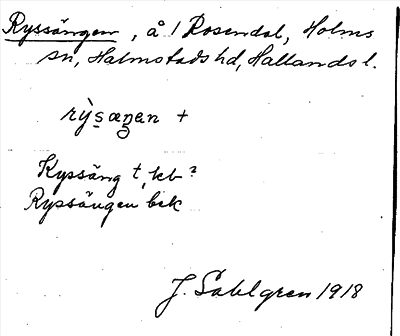 Ryssängen, å / Rosendal, Holms
sn, Halmstads hd, Hallands l.
rỳsæŋen +
Kyssäng t, kb ?
Ryssängen bek
J. Sahlgren 1918